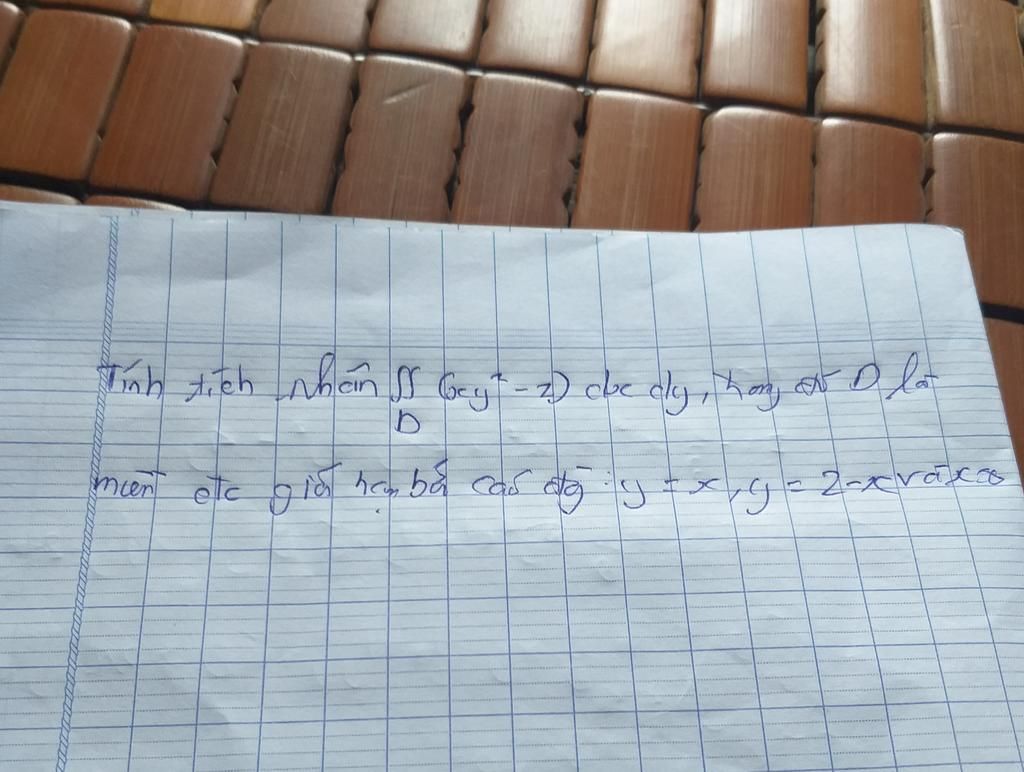 Tính tích nhân ∬ (xy² - 2) dx dy, trong đó D là
D
miền đc giới hạn bở các đg : y = x, y = 2-x và x=0